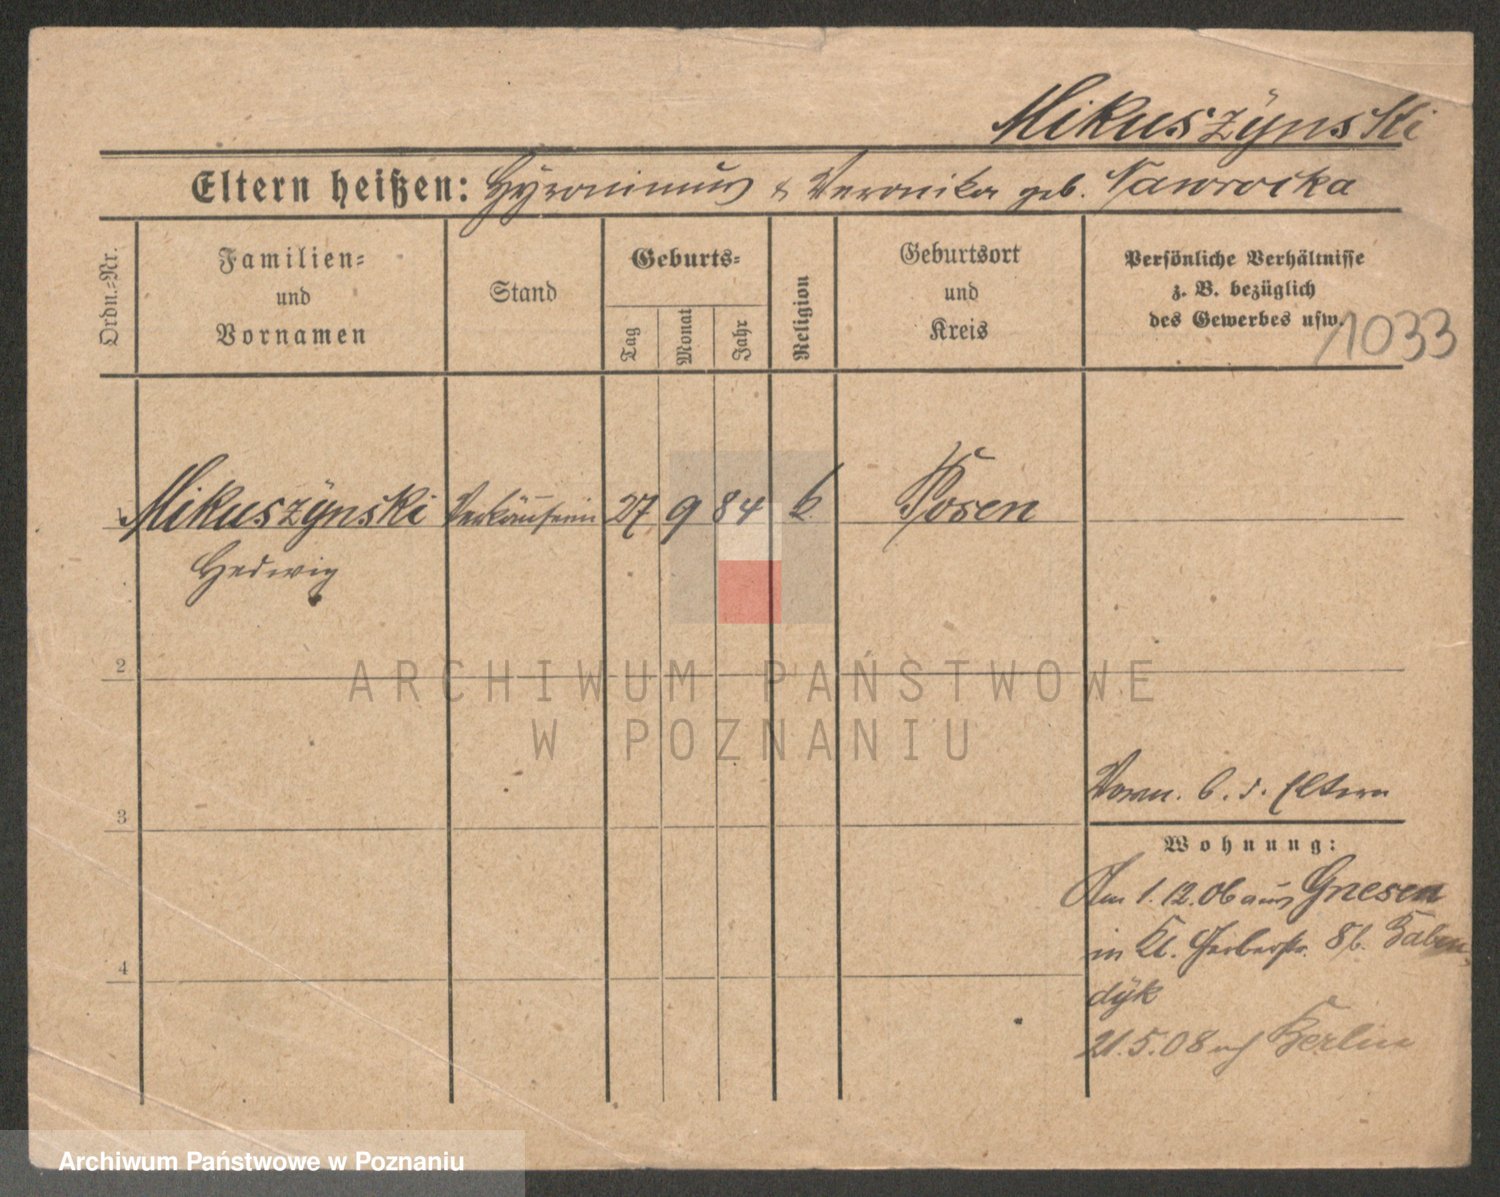 Mikuszÿnski
Eltern heißen: Hyronimus & Veronika geb. Nawrocka
Ordn.-Nr.
Familien- und Vornamen
Stand
Geburts-
Tag
Monat
Jahr
Religion
Geburtsort und Kreis
Persönliche Verhältnisse
z. B. bezüglich
des Gewerbes usw.
1033
1 Mikuszÿnski Verkäuferin 27 9 84 k. Posen
Hedwig
2
ARCHIWUM PAŃSTWOWE
W POZNANIU
3
4
Vorm. b. d. Eltern
Wohnung:
Am 1.12.06 aus Gnesen
in Kl. Gerberstr. 8 b.
dÿk
21.5.08 n/ Berlin
Archiwum Państwowe w Poznaniu